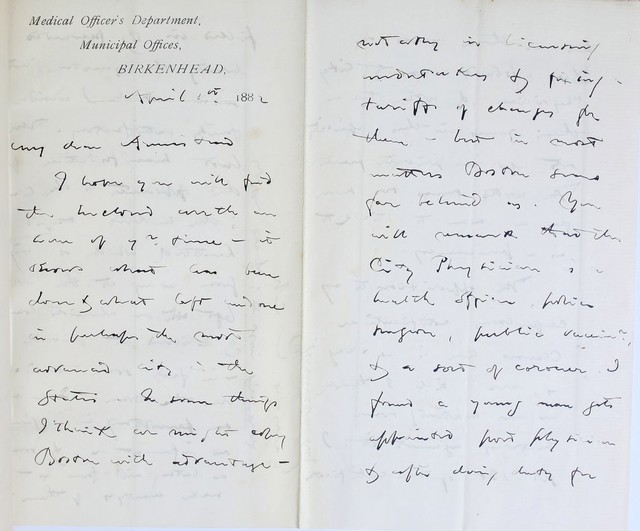 Medical Officer's Department,
Municipal Offices,
BIRKENHEAD,
April 1st 1882
My dear Armistead
I hope you will find
the enclosed worth an
hour of yr. time – it
shows what has been
done & what left undone
in perhaps the most
advanced city in the
States. In some things
I think we might copy
Boston with advantage –
notably in licensing
undertakers & fixing
tariffs of charges for
them – but in most
matters Boston seems
far behind us. You
will remark that the
City Physician is a
health officer, police
surgeon, public vaccinr,
& a sort of coroner. I
found a young man gets
appointed port physician
& after doing duty for